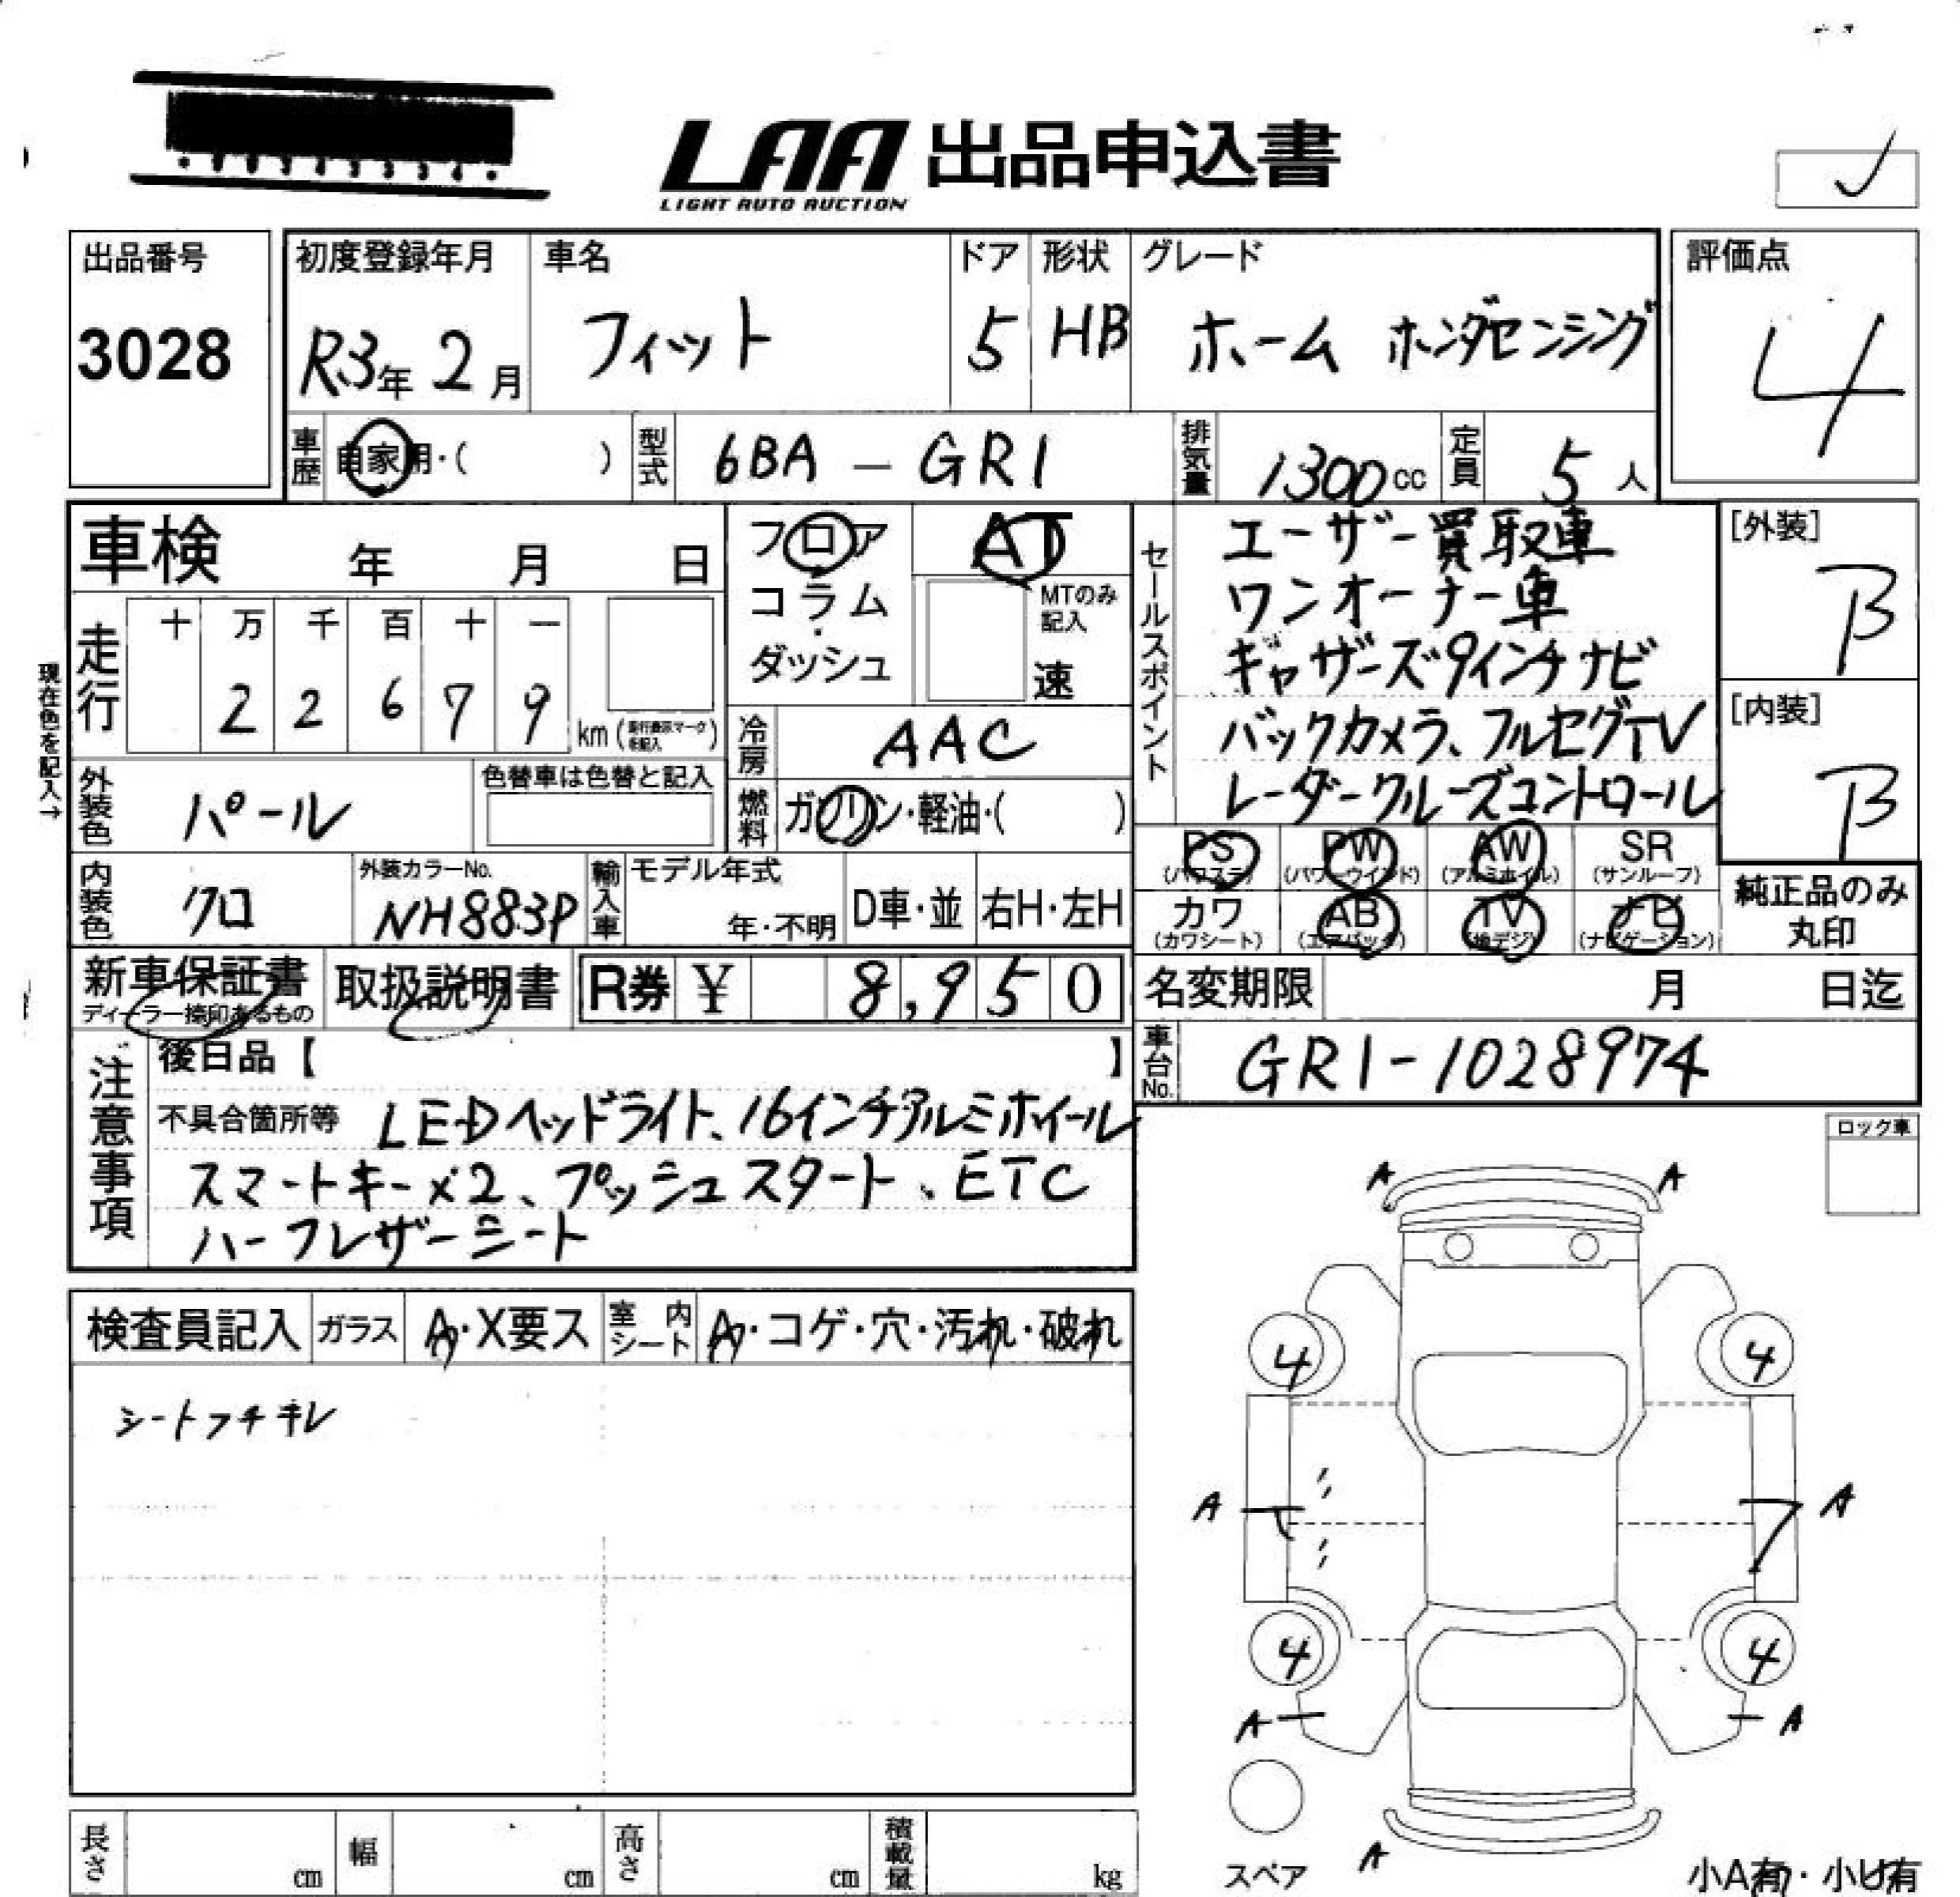 LAA 出品申込書
LIGHT AUTO AUCTION
出品番号
3028
初度登録年月
R3年 2月
車名
フィット
ドア
5
形状
HB
グレード
ホーム ホンダセンシング
評価点
4
車歴
自家用・( )
型式
6BA - GR1
排気量
1300cc
定員
5人
車検 年 月 日
フロア
コラム・
ダッシュ
AT
MTのみ
記入
速
セールスポイント
エーザー買取車
ワンオーナー車
ギャザーズ9インチナビ
バックカメラ、フルセグTV
レーダークルーズコントロール
[外装]
B
[内装]
B
現在色を記入→
走行
十 万 千 百 十 一
2 2 6 7 9 km
冷房
AAC
外装色
パール
色替車は色替と記入
燃料
ガソリン・軽油・( )
内装色
クロ
外装カラーNo.
NH883P
輸入車
モデル年式
年・不明
D車・並
右H・左H
PS PW AW SR
(パワステ) (パワーウインド) (アルミホイル) (サンルーフ)
カワ AB TV ナビ
(カワシート) (エアバッグ) (地デジ) (ナビゲーション)
純正品のみ
丸印
新車保証書
ディーラー捺印あるもの
取扱説明書
R券 ¥ 8,950
名変期限 月 日迄
車台No.
GR1-1028974
注意事項
後日品【 】
不具合箇所等 LEDヘッドライト、16インチアルミホイール
スマートキー×2、プッシュスタート、ETC
ハーフレザーシート
ロック車
検査員記入
ガラス
A・X要ス
室内
シート
A・コゲ・穴・汚れ・破れ
シートフチキレ
A A
4 4
A A
4 4
A A
A
スペア
小A有・小U有
長さ cm
幅 cm
高さ cm
積載量 kg